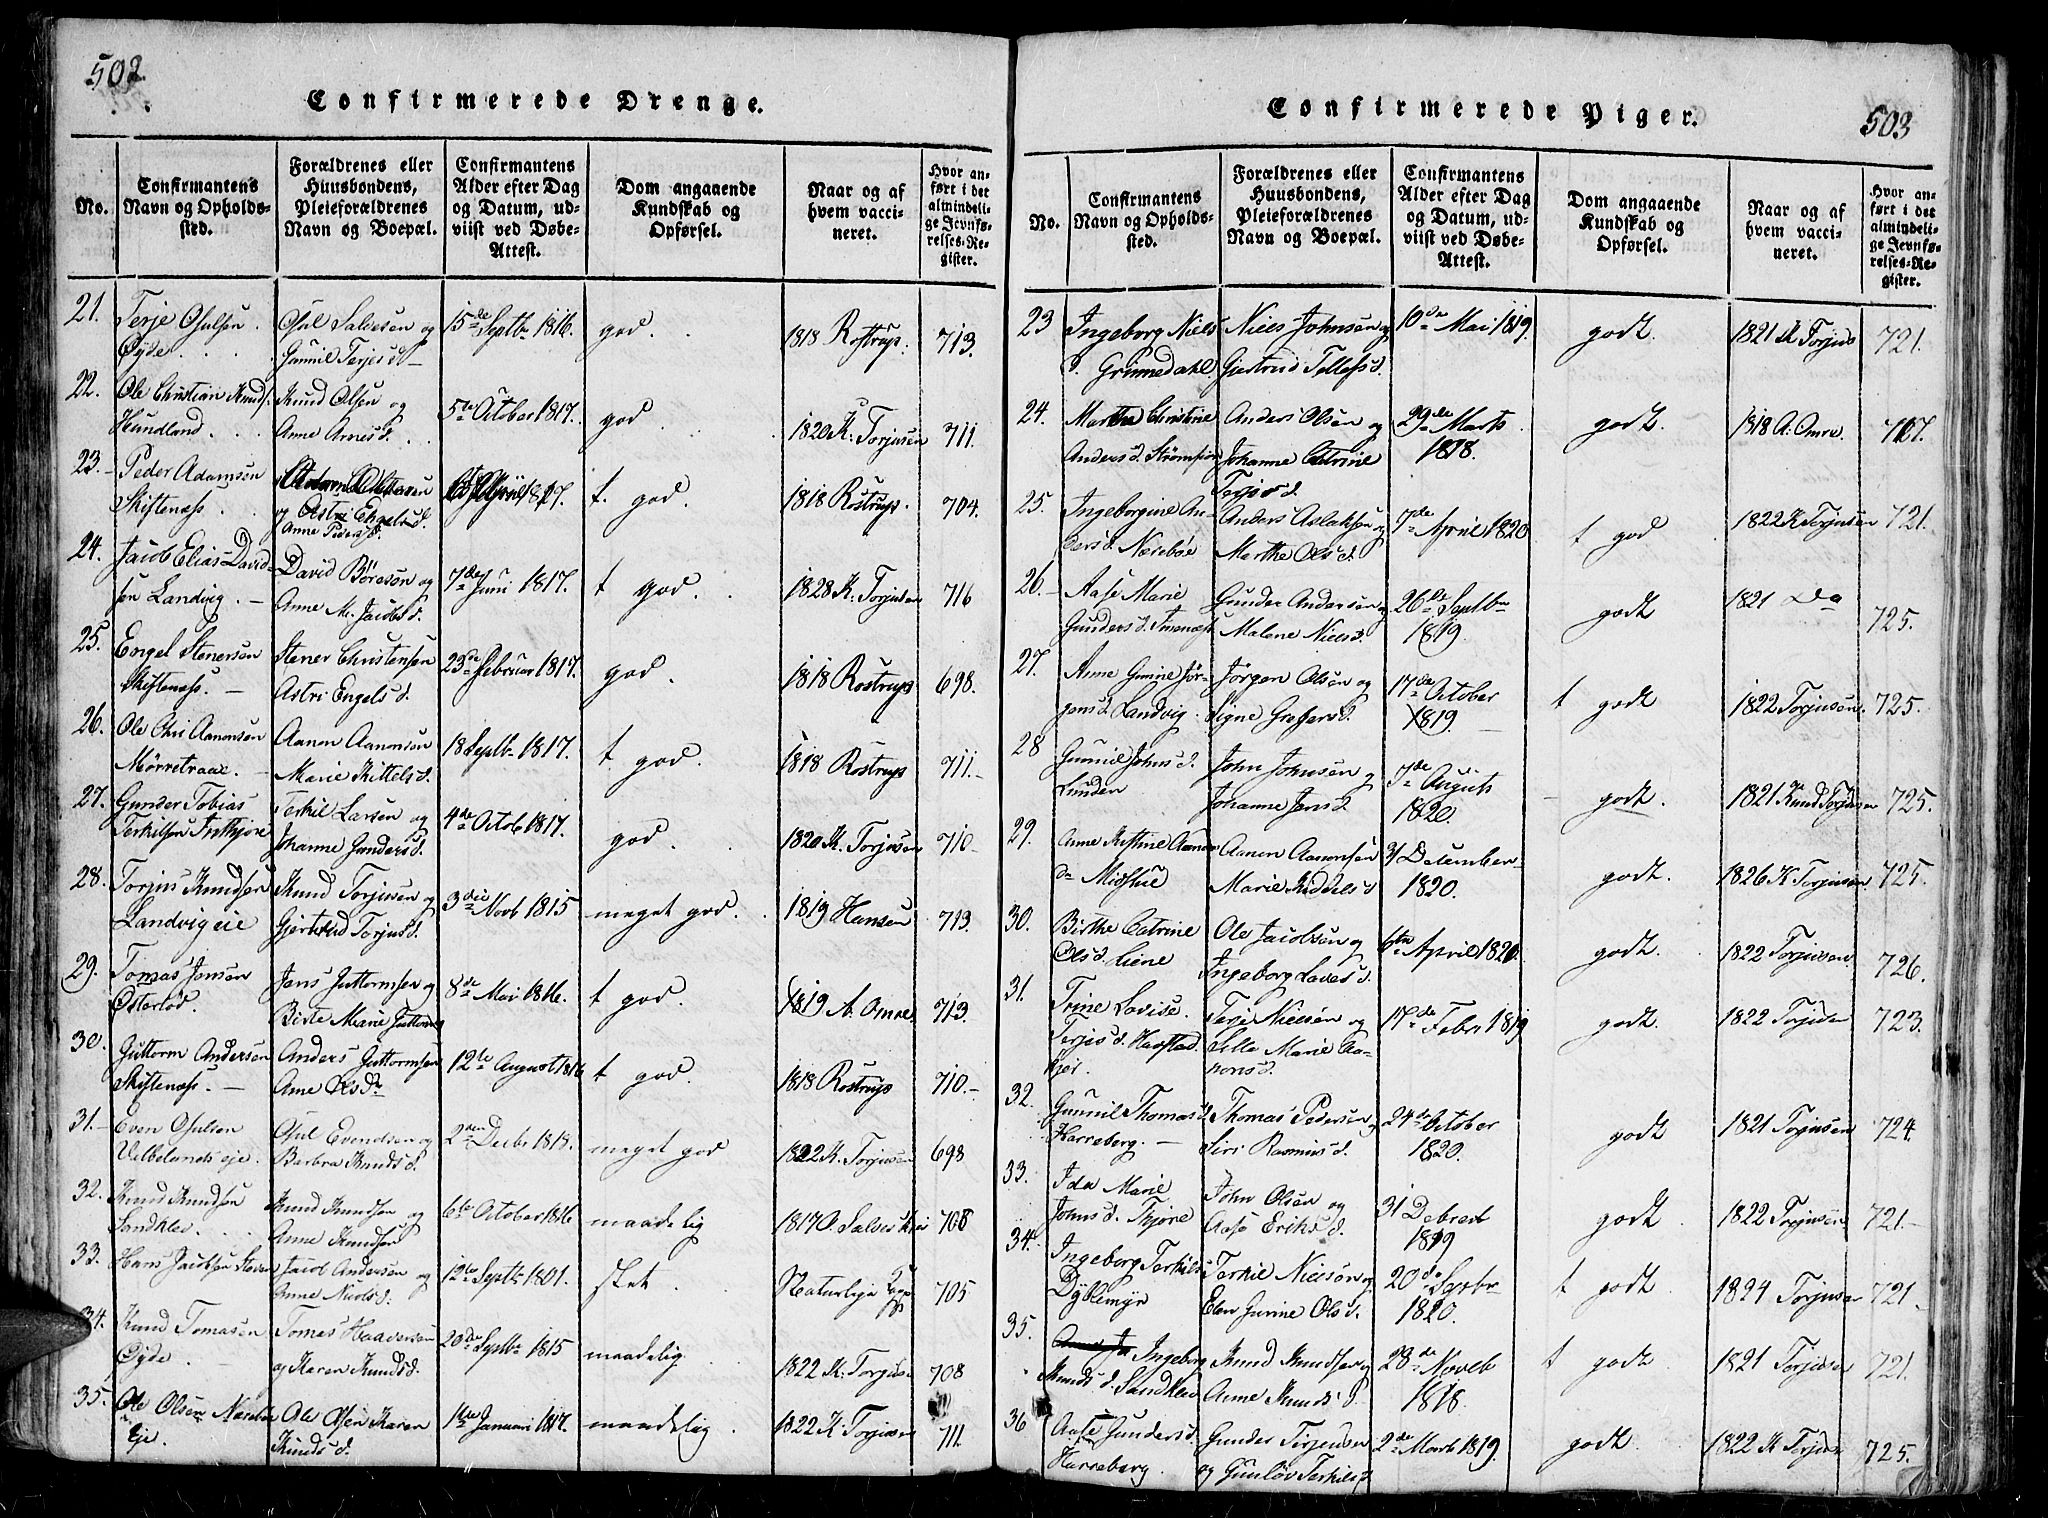 502.
Confirmerede Drenge.
No.
Confirmantens Navn og Opholdssted.
Forældrenes eller Huusbondens, Pleieforældrenes Navn og Boepæl.
Confirmantens Alder efter Dag og Datum, udviist ved Døbe-Attest.
Dom angaaende Kundskab og Opførsel.
Naar og af hvem vaccineret.
Hvor anført i det almindelige Jevnførelses-Register.
21. Terje Osulsen Øyde. Osul Salvesen og Gunnil Terjesd. 15de Septbr 1816. god. 1818 Rostrup. 713.
22. Ole Christian Knuds. Hundland Knud Olsen og Anne Arnesd. 5te October 1817. god. 1820 K. Torjusen 711.
23. Peder Adamsen Skiftenæss. Anne Pedersd. t. god 1818 Rostrup. 704.
24. Jacob Elias Davidsen Landvig. David Böresen og Anne M. Jacobsd. 7de Juni 1817. t god. 1828 K. Torjusen 716
25. Engel Stenersen Skiftenæss. Stener Christensen Astri Engelsd. 23de Februar 1817. god. 1818 Rostrup 698.
26. Ole Chri Aanonsen Mørretraae. Aanon Aanonsen Marie Kittelsd. 18 Septbr 1817. t. god. 1818 Rostrup 711.
27. Gunder Tobias Terkilsen Indtjore Terkil Larsen og Johanne Gundersd. 4de Octob 1817. god. 1820 K. Torjusen 710
28. Torjus Knudsen Landvig eie Knud Torjusen og Gjertrud Torjusd. 3die Novb 1815 meget god. 1819 Hansen 713.
29. Tomas Jensen Østerlod. Jens Guttormsen og Birte Marie Guttorms 8de Mai 1816. t god. 1819 A. Omre 713.
30. Guttorm Andersen Skiftenæss. Anders Guttormsen Anne Olsdr 12te August 1816 t god. 1818 Rostrup 710.
31. Even Osulsen Velbelands eje. Osul Evendsen og Barbra Knudsd. 2den Decbr meget god 1822 K. Torjusen 698
32. Knud Knudsen Sandklev Knud Knudsen og Anne Knudsen 6te October 1816 maadelig 1817 O. Salves 708
33. Hans Jacobsen Jacob Andersen og Anne Nielsd. 12te Septbr 1801. slet. Naturlige Kopp 705
34. Knud Tomasen Øyde. Tomas Haaversen og Karen Knudsd. 20de Septbr 1815 maadelig 1822 K. Torjusen 708
35. Ole Olsen Næsebøe Eje. Ole Olsen Karen Knudsd. 1te Januari 1817. maadelig. 1822 K. Torjusen 711.
503
Confirmerede Piger.
No.
Confirmantens Navn og Opholdssted.
Forældrenes eller Huusbondens, Pleieforældrenes Navn og Boepæl.
Confirmantens Alder efter Dag og Datum, udviist ved Døbe-Attest.
Dom angaaende Kundskab og Opførsel.
Naar og af hvem vaccineret.
Hvor anført i det almindelige Jevnførelses-Register.
23 Ingeborg Nielsd. Grimedahl Niels Johnsen og Giertrud Tellefsd. 10de Mai 1819. godt. 1821 K Torjus 721.
24. Marthe Christine Andersd. Strømsøe Anders Olsen og Johanne Catrine Terjesd. 29de Marts 1818. godt. 1818 A. Omre 717.
25. Ingeborgine Andersd. Næsebøe Anders Aslaksen og Marthe Olsd. 7de April 1820 t god 1822 K Torjusen 721.
26. Aase Marie Gundersd. Imenæs Gunder Andersen og Malene Nielsd. 26de Septbr 1819. godt 1821 Do 725.
27. Anne Gunine Jörgensd. Landvig. Jörgen Olsen og Signe Gregersd. 17de October 1819. t godt 1822 Torjusen. 725.
28 Gunnil Johnsd. Lunden John Johnsen og Johanne Jensd. 7de August 1820. godt. 1821 Knud Torjusen 725.
29. Anne Kistine Aanonsdr Midstue Aanon Aanonsen Marie Kiddelsd 31 December 1820. godt. 1826 K Torjusen 725.
30. Birthe Catrine Olsd. Liene Ole Jacobsen og Ingeborg Lavesd. 6te April 1820. godt 1822 Torjusen. 726.
31. Trine Lovise Terjesd. Havstad kjer. Terje Nielsen og Sille Marie Aanonsd. 17de Febr 1819 godt. 1822 Torjusen 723.
32. Gunnil Thomasd. Harreberg. Thomas Pedersen og Siri Rasmusd. 24de October 1820. godt 1821 Torjusen 724.
33. Ida Marie Johnsd. Tjore John Olsen og Aase Eriksd. 31 Decbr 1819 godt 1822 Torjusen 721.
34. Ingeborg Terkilsd Dyblemyr Terkil Nielsen og Elen Gurine Olsd. 20de Septbr 1820. t godt 1824 Torjusen 721.
35. Ingeborg Knudsd. Sandklev Knud Knudsen og Anne Knudsd. 28de Novb 1818. t godt 1821 Torjusen 721.
36 Aase Gundersd. Harreberg. Gunder Terjesen og Gunløv Terkilsd 2de Marts 1819. godt 1822 K Torjus 725.